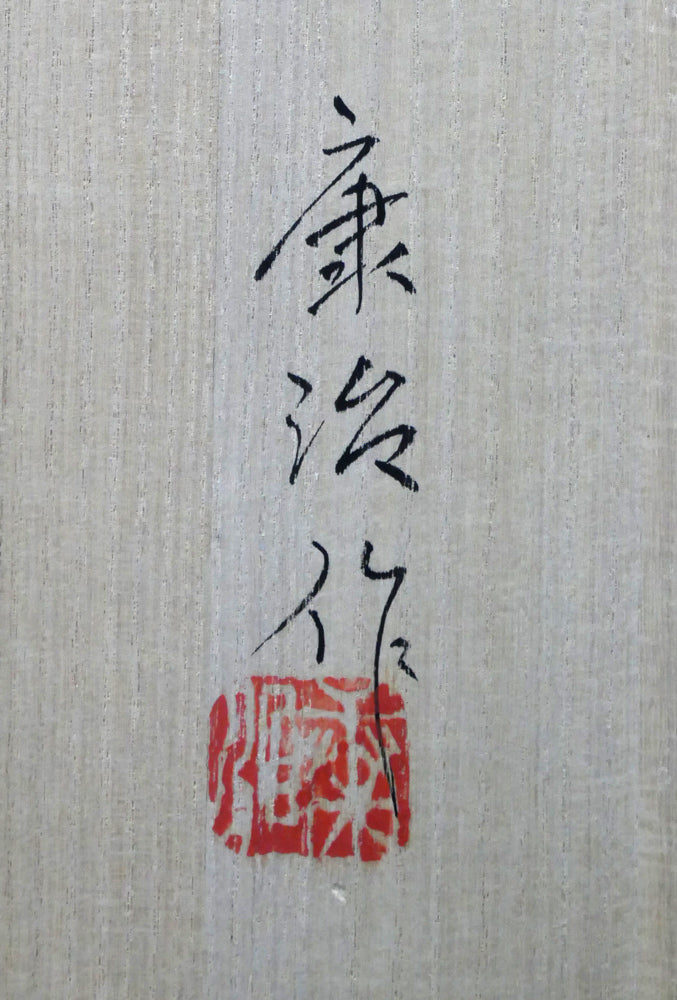 康治作